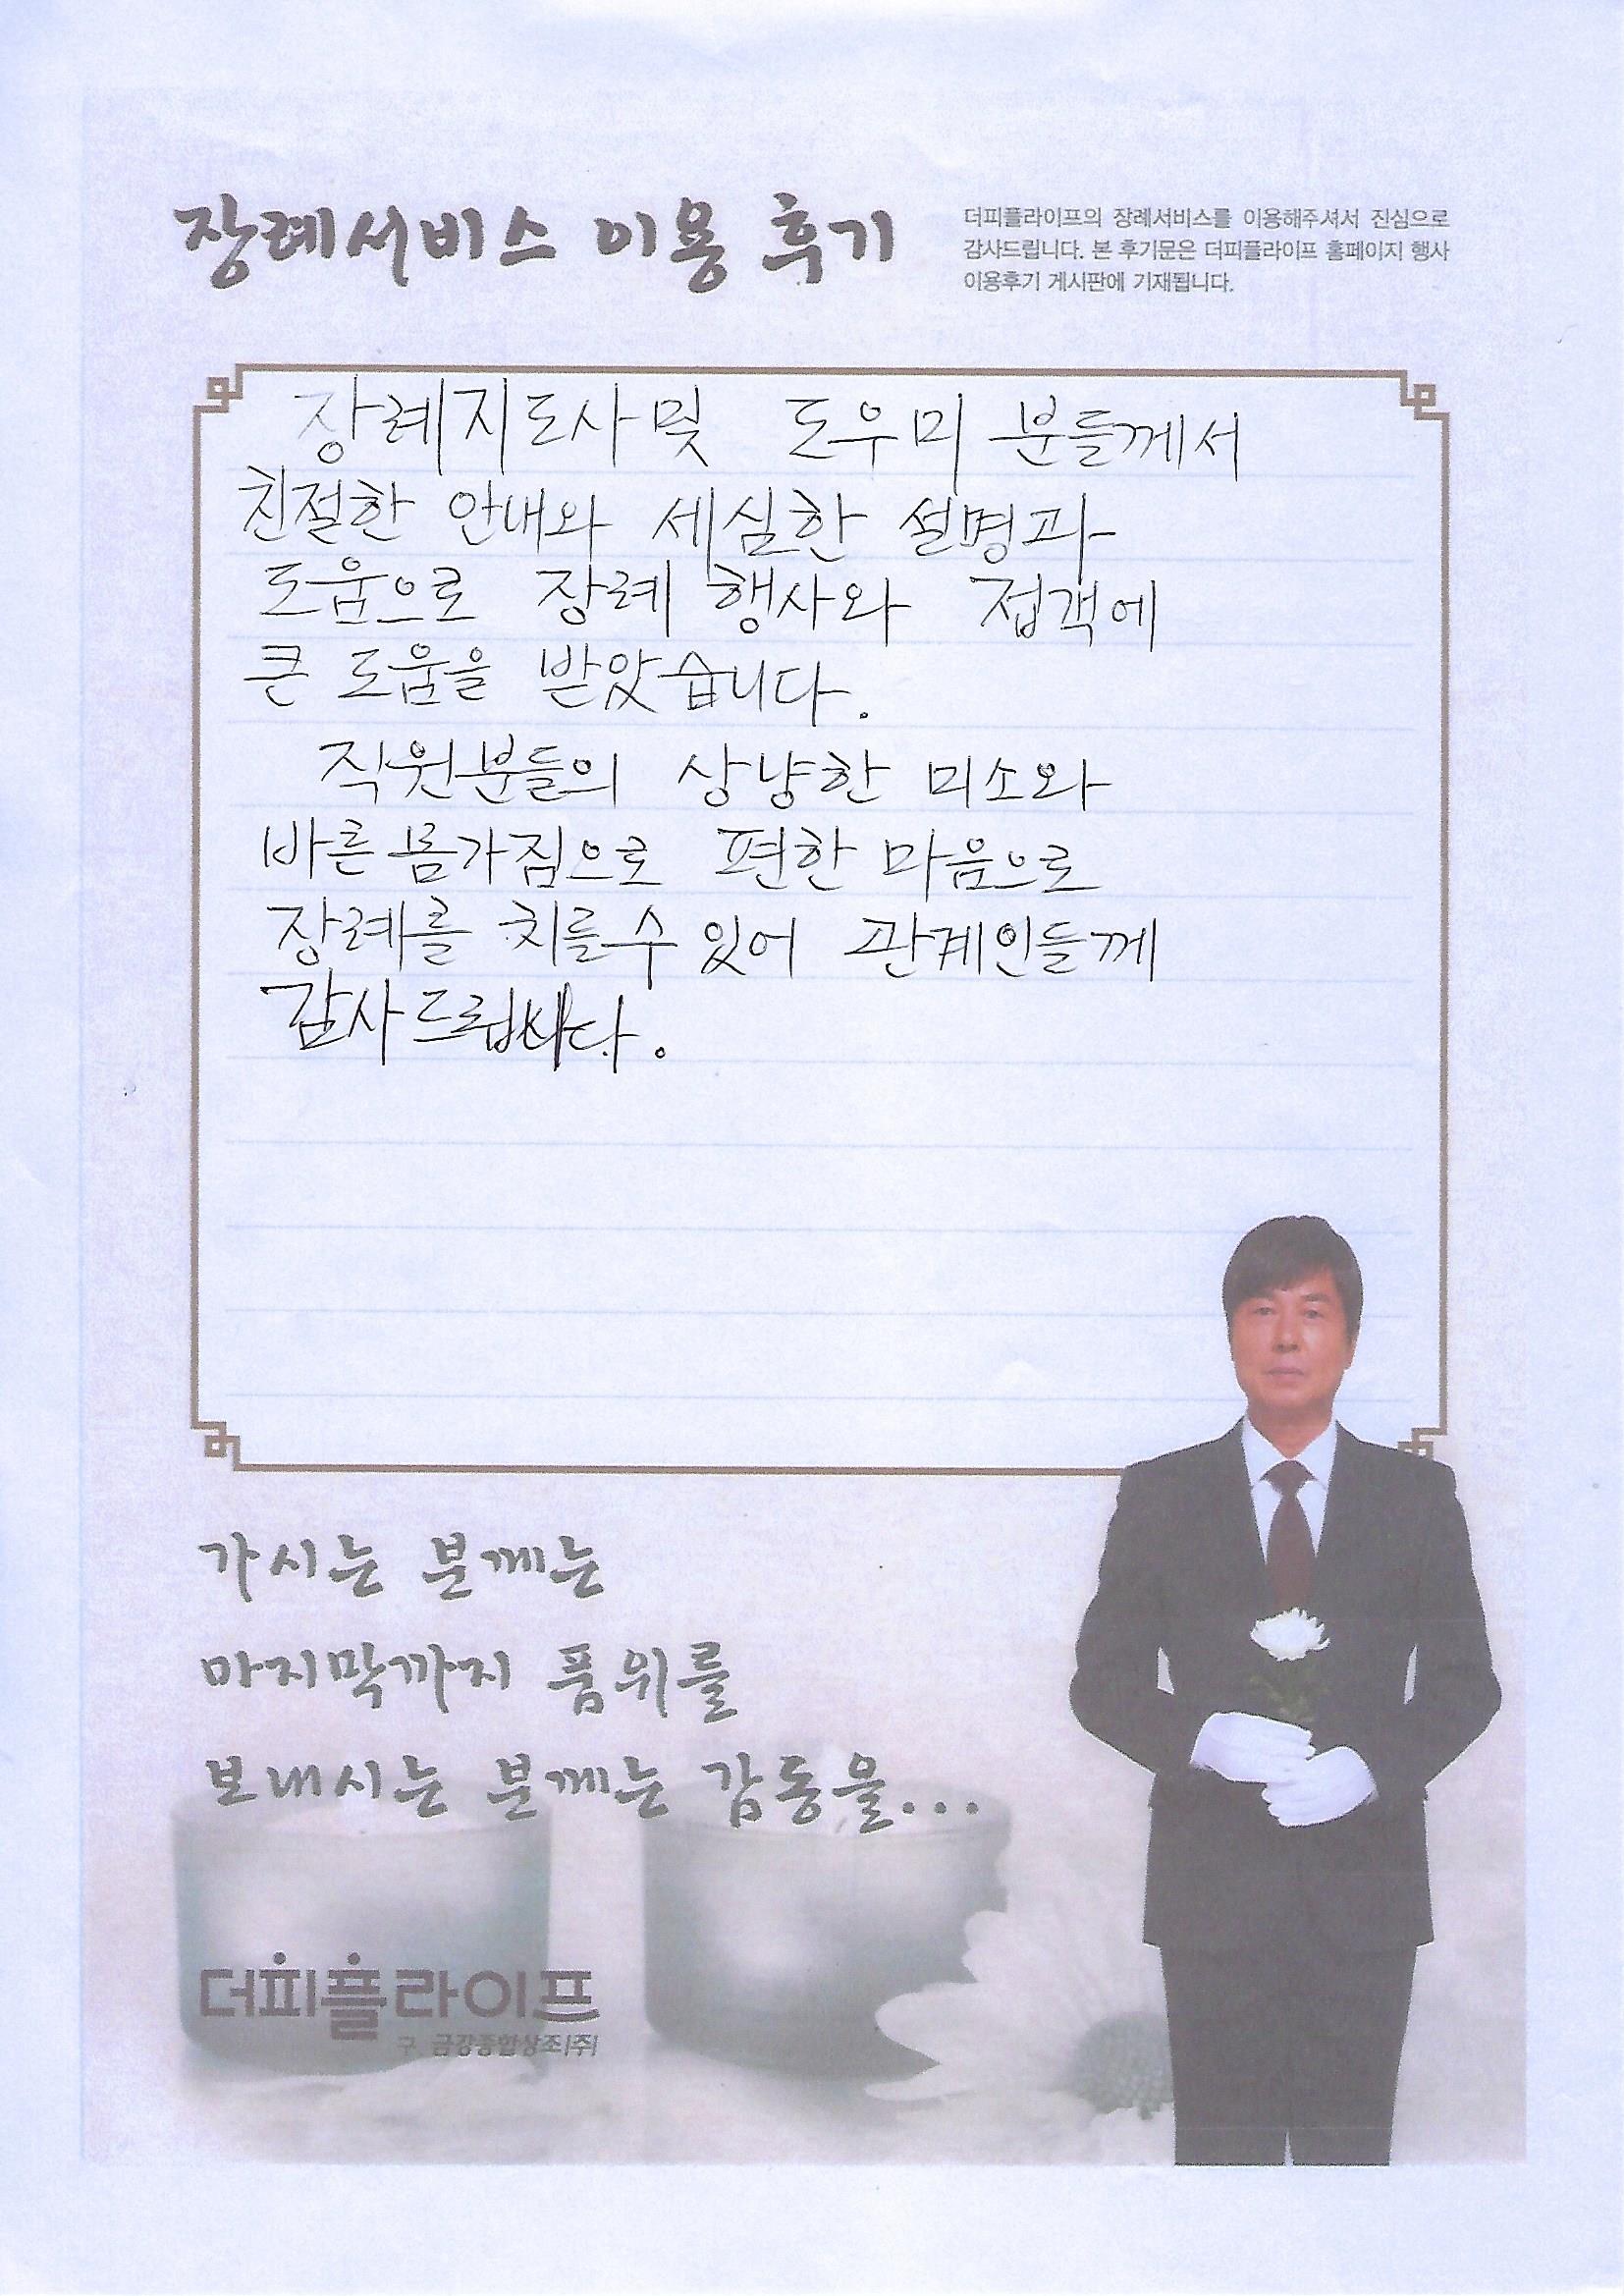 장례서비스 이용 후기
더피플라이프의 장례서비스를 이용해주셔서 진심으로
감사드립니다. 본 후기문은 더피플라이프 홈페이지 행사
이용후기 게시판에 기재됩니다.
장례지도사및 도우미 분들께서
친절한 안내와 세심한 설명과
도움으로 장례 행사와 접객에
큰 도움을 받았습니다.
직원분들의 상냥한 미소와
바른 몸가짐으로 편한 마음으로
장례를 치를수 있어 관계인들께
감사드립니다.
가시는 분께는
마지막까지 품위를
보내시는 분께는 감동을...
더피플라이프
구. 금강종합상조(주)